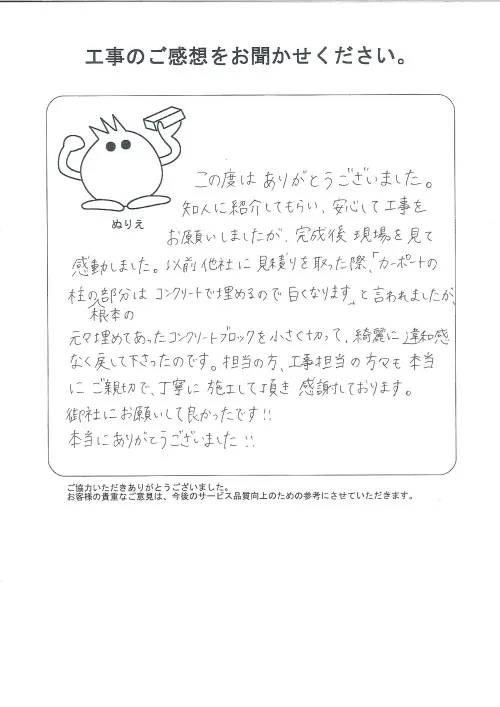 工事のご感想をお聞かせください。
ぬりえ
この度は ありがとうございました。
知人に紹介してもらい、安心して工事を
お願いしましたが、完成後 現場を見て
感動しました。以前他社に見積りを取った際、「カーポートの
柱の部分は コンクリートで埋めるので白くなります」と言われましたが、
根本の
元々埋めてあったコンクリートブロックを小さく切って、綺麗に違和感
なく戻して下さったのです。担当の方、工事担当の方々も本当
に ご親切で、丁寧に 施工して頂き 感謝しております。
御社にお願いして良かったです!!
本当にありがとうございました!!
ご協力いただきありがとうございました。
お客様の貴重なご意見は、今後のサービス品質向上のための参考にさせていただきます。